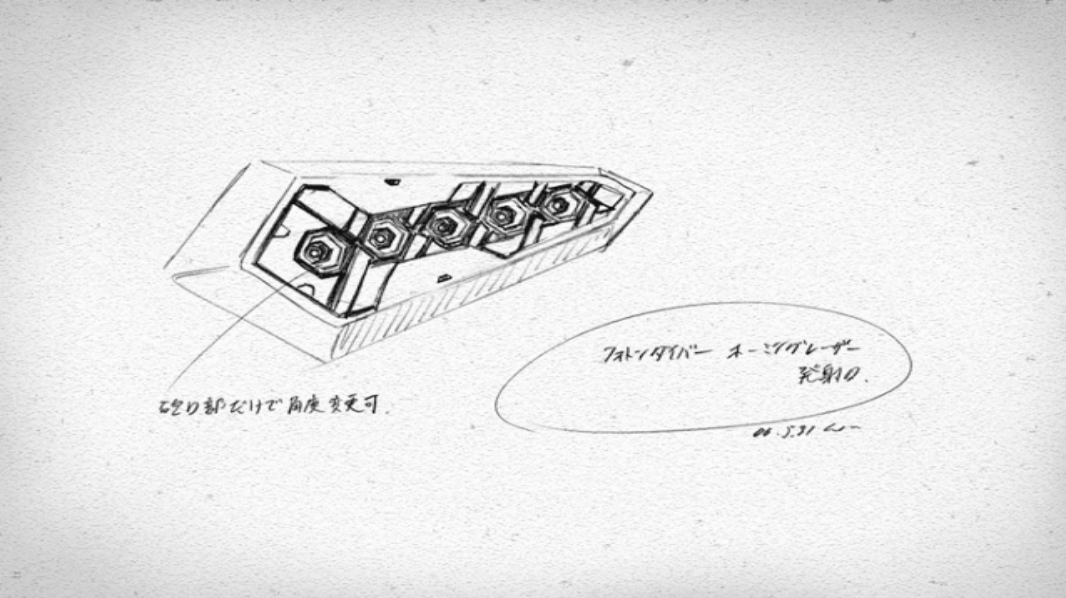 砲口部だけで角度変更可.
フォトンダイバー ホーミングレーザー
発射口.
06.5.31